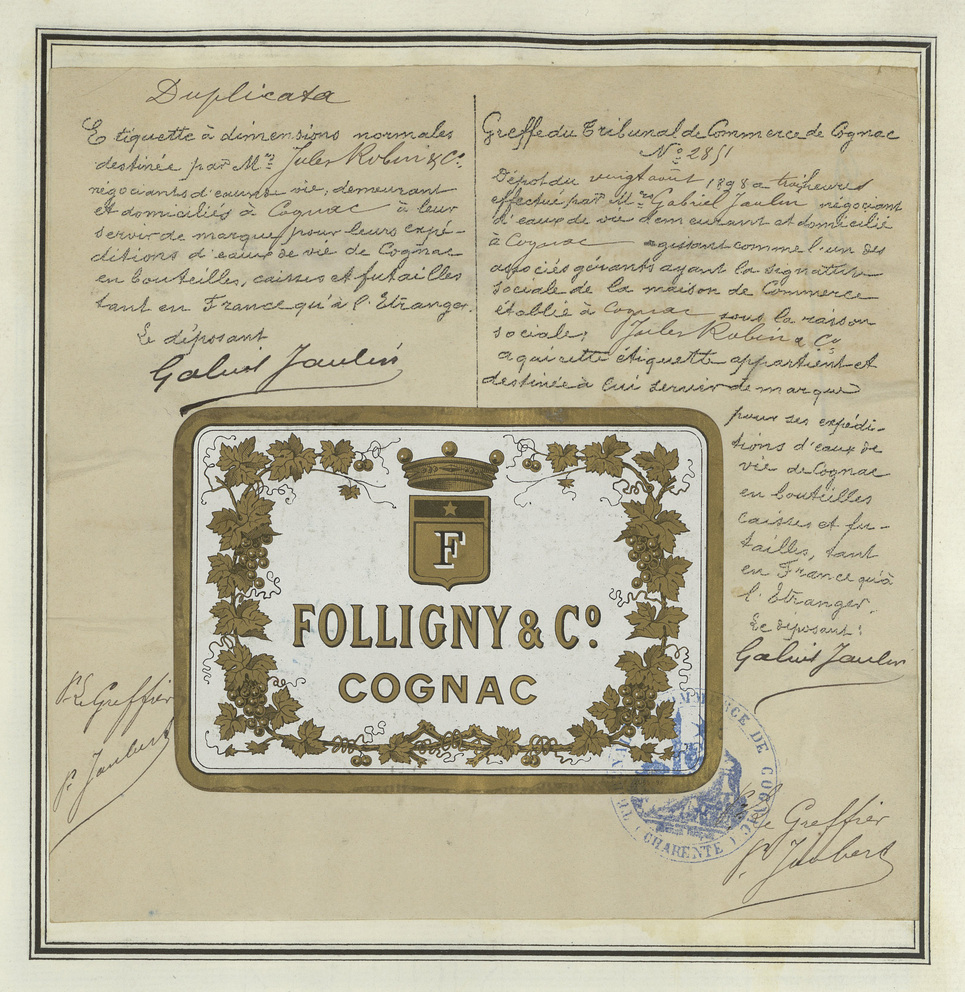 Duplicata
Etiquette à dimensions normales
destinée par Mrs Jules Robin & Co
négociants d'eau de vie, demeurant
et domiciliés à Cognac à leur
servir de marque pour leurs expé-
ditions d'eaux de vie de Cognac
en bouteilles, caisses et futailles
tant en France qu'à l'Etranger.
Le déposant
Gabriel Jaulin
Greffe du Tribunal de Commerce de Cognac
No 2851
Dépot du vingt août 1898 a trois heures
effectué par Mr Gabriel Jaulin négociant
d'eaux de vie demeurant et domicilié
à Cognac agissant comme l'un des
associés gérants ayant la signature
sociale de la maison de Commerce
établie à Cognac sous la raison
sociale: Jules Robin & Co
a qui cette étiquette appartient et
destinée à lui servir de marque
pour ses expédi-
tions d'eaux de
vie de Cognac
en bouteilles
caisses et fu-
tailles, tant
en France qu'à
l'Etranger.
Le déposant:
Gabriel Jaulin
F
FOLLIGNY & Co.
COGNAC
Le Greffier
P. Joubert
COMMERCE DE COGNAC
(CHARENTE)
Le Greffier
P. Joubert